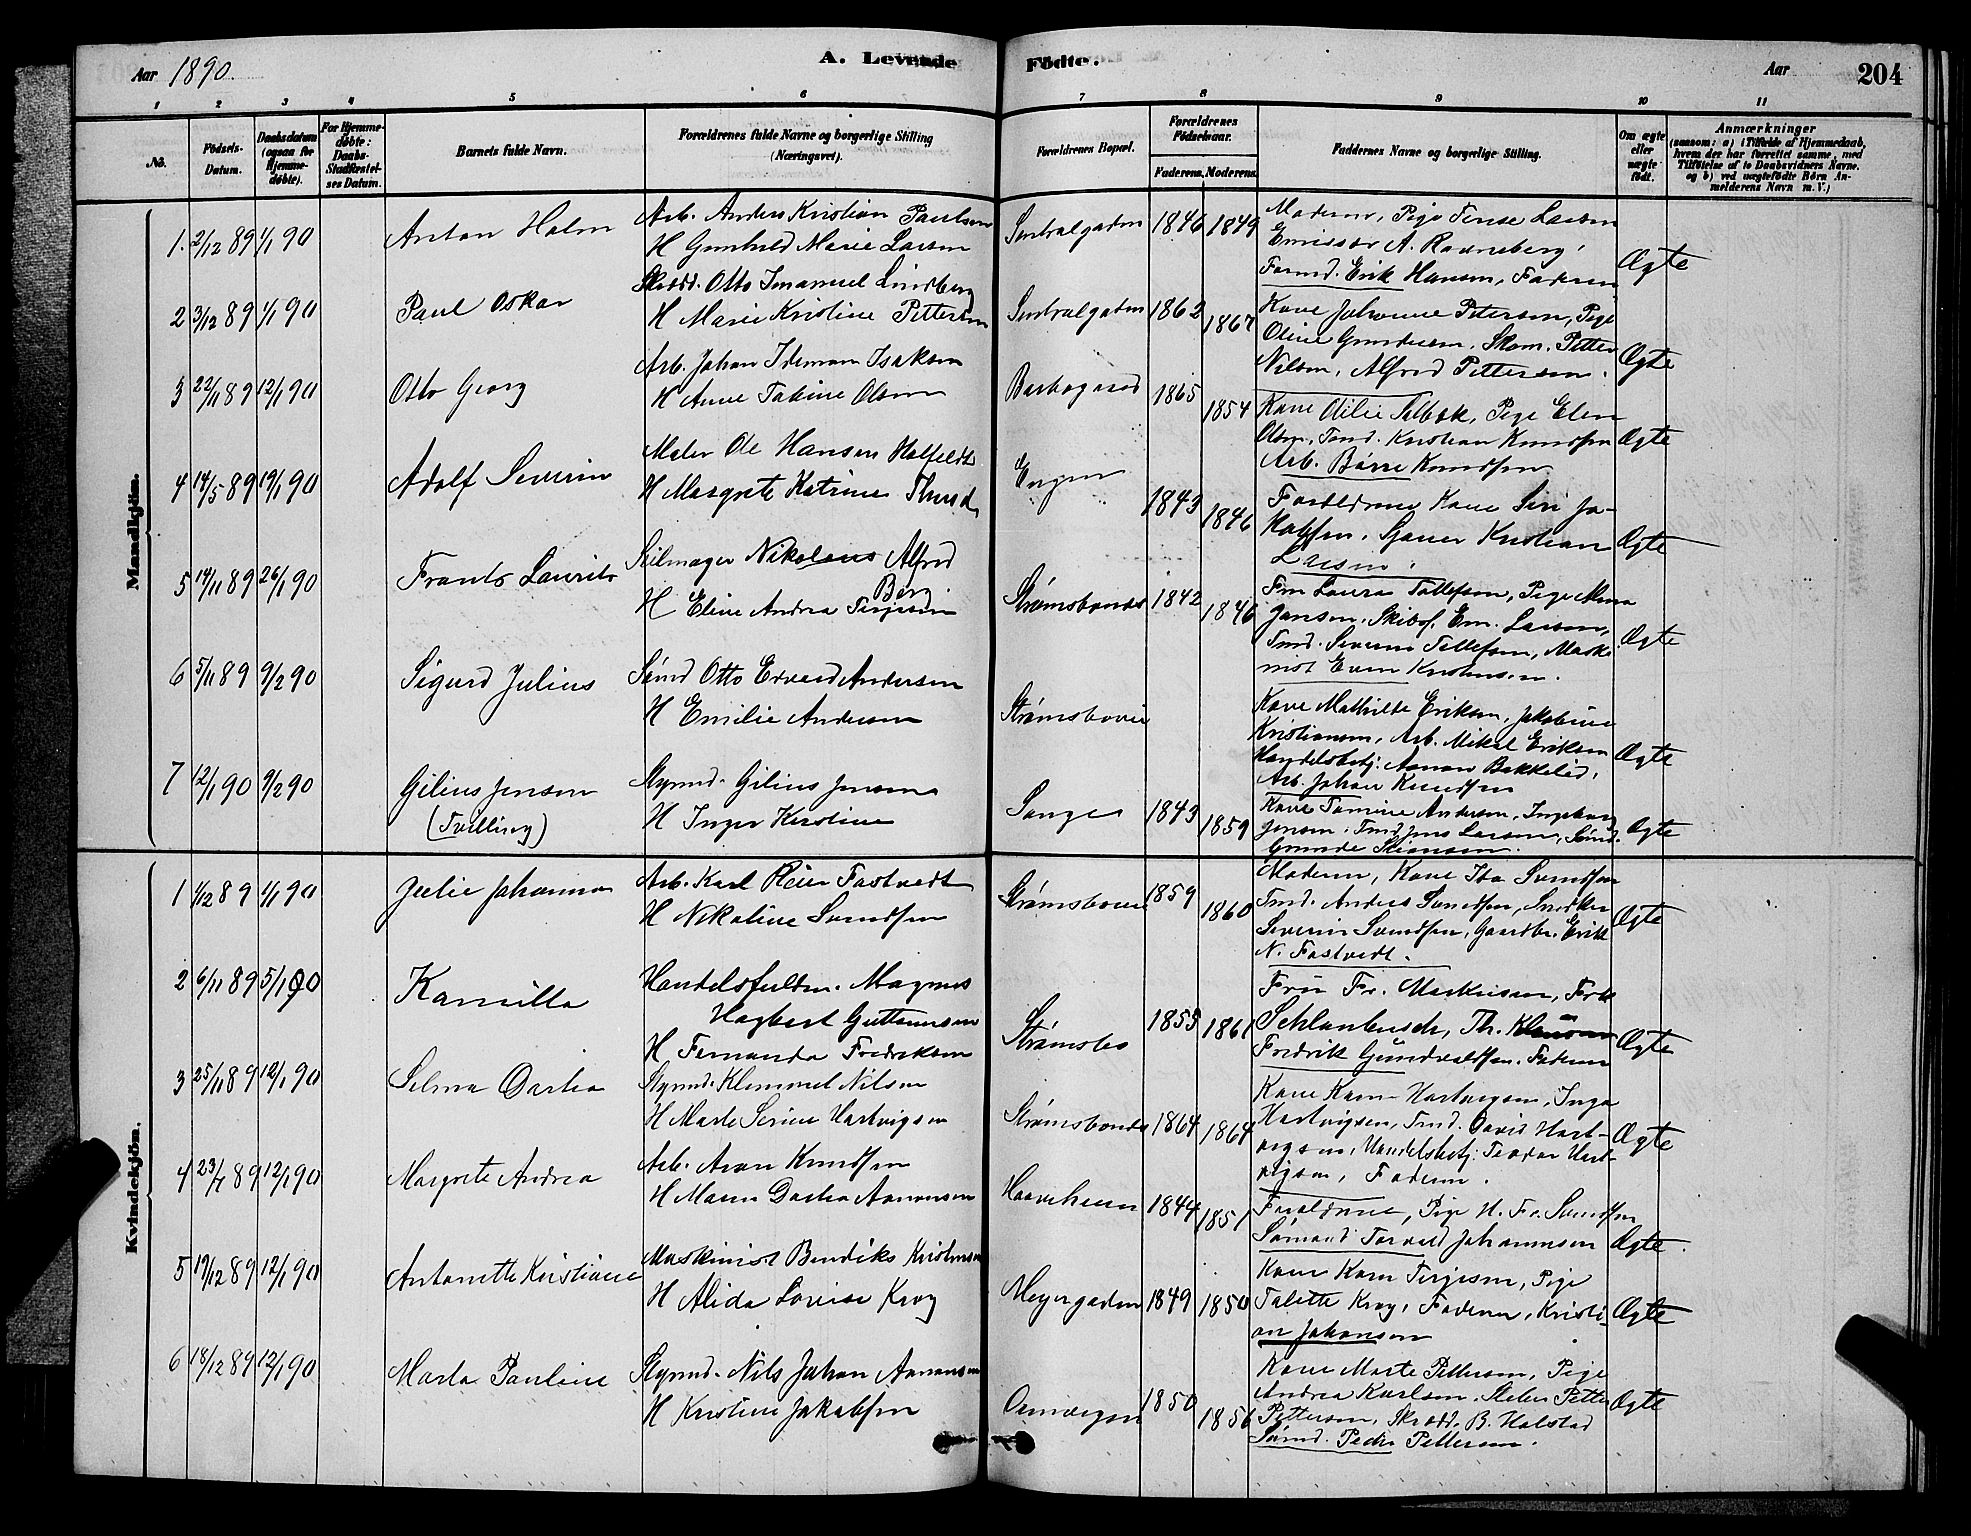 Aar 1890.
A. Levende Fødte.
Aar
204
1 2 3 4 5 6 7 8 9 10 11
No.
Fødsels-Datum.
Daabsdatum (ogsaa for Hjemme-døbte).
For Hjemme-døbte: Daabs-Stadfæstel-ses Datum.
Barnets fulde Navn.
Forældrenes fulde Navne og borgerlige Stilling (Næringsvei).
Forældrenes Bopæl.
Forældrenes Fødselsaar.
Faderens. Moderens.
Faddernes Navne og borgerlige Stilling.
Om ægte eller uægte født.
Anmærkninger
(saasom: a) i Tilfælde af Hjemmedaab, hvem der har forrettet samme, med Tilføielse af to Daabsvidners Navne, og b) ved uægtefødte Børn An-melderens Navn m. V.)
Mandkjön.
1. 2/12 89 1/1 90 Anton Holm
Arb. Anders Kristian Paulsen
H Gunhild Marie Larsen
Sentralgaden 1846 1849
Moderen, Pige Tense Larsen
Emissær A. Ranneberg,
Tømd. Erik Hansen, Faderen
Ægte
2 3/12 89 1/1 90 Paul Oskar
Skrædd. Otto Imanuel Lindberg
H Marie Kristine Pettersen
Sentralgaden 1862 1867
Kone Johanne Petersen, Pige
Oline Gundersen, Skom. Petter
Nilsen, Alfred Pettersen.
Ægte
3 22/11 89 12/1 90 Otto Georg
Arb. Johan Ideman Isaksen
H Anne Tabine Olsen
Barbogaard 1865 1854
Kone Oilie Talbak, Pige Elen
Olsen, Tmd. Kristian Knudsen
Arb. Børre Knudsen
Ægte
4 14/5 89 19/1 90 Adolf Severin
Maler Ole Hansen Hotfeldt
H Margrete Katrine
Engen 1843 1846
Forældrene Kone Siri Ja-
kobsen, Sjauer Kristian
Larsen.
Ægte
5 14/11 89 26/1 90 Frants Laurits
Seilmager Nikolaus Alfred
Berg
H Eline Andrea Terjesen
Strømsbonde 1842 1846
Fru Laura Tallefsen, Pige Alma
Jansen, Skibsf. Em. Larsen,
Tmd. Severin Tellefsen, Maski-
nist Even Kristensen.
Ægte
6 5/11 89 9/2 90 Sigurd Julius
Sømd Otto Edvard Andersen
H Emilie Andersen
Strømsboveie
Kone Mathilde Eriksen, Jakobine
Kristiansen, Arb. Mikal Eriksen
Handelsbetj. Aanon Bakkelid,
Arb. Johan Knudsen
Ægte
7 12/1 90 9/2 90 Gilius Jensen
(Tvilling)
Styrmd. Gilius Jensen
H Inger Kirstine
Songe 1843 1859
Kone Tomine Andersen, Ingeborg
Jensen, Tmd Jens Larsen, Sømd.
Gunde Stiansen.
Ægte
Kvindekjön.
1 1/12 89 1/1 90 Julie Johanna
Arb. Karl Reier Fastvedt
H Nikoline Svendsen
Strømsboveie 1859 1860
Moderen, Kone Ida Svendsen
Tmd. Anders Svendsen, Snedker
Severin Svendsen, Gaardbr. Erik
N. Fastvedt.
Ægte
2 6/11 89 5/1 90 Kamilla
Handelsfuldm. Magnus
Hagbart Guttormsen
H Fernanda Fredriksen
Strømsbo 1855 1861
Fru Fr. Markusen, Frk
Schlanbusch, Th.
Fredrik Gundvaldsen, Faderen
Ægte
3 25/11 89 12/1 90 Selma Dortea
Styrmd. Klemmet Nilsen
H Marte Serine Hartvigsen
Strømsbonde 1864 1864
Kone Karen Hartvigsen, Inga
Hartvigsen, Tmd. David Hart-
vigsen, Handelsbetj. Teodor Hart-
vigsen, Faderen.
Ægte
4 12/1 90 Margrete Andrea
Arb. Aron Knudsen
H Maren Dortea Aanonsen
1844 1851
Forældrene, Pige H. Fr. Svendsen
Sømand Torvald Johannesen
Ægte.
5 19/12 89 12/1 90 Antonette Kristiane
Maskinist Bendiks Kristensen
H Alida Lovise Krog
Meyergaden 1849 1850
Kone Karen Terjesen, Pige
Talette Krog, Faderen, Kristi-
an Johansen
Ægte
6 18/12 89 12/1 90 Marta Pauline
Styrmd. Nils Johan Aanonsen
H Kristine Jakobsen
1850 1856
Kone Marte Pettersen, Pige
Andrea Karlsen, Petter
Pettersen, Skrædd. B. Halstad
Sømd. Peder Pettersen.
Ægte